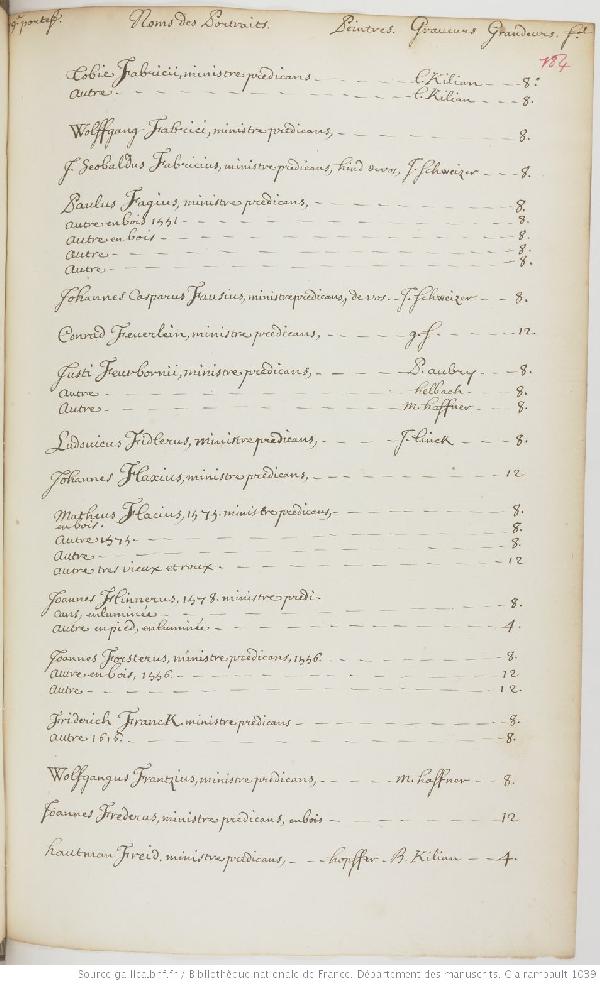 portef. Noms des Portraits. Peintres. Graveurs Grandeurs. fol
184
Tobie Fabricii, ministre predicans - l. Kilian - 8.
autre - l. Kilian - 8.
Wolffgang Fabrici, ministre predicans, - 8.
J. Seobaldus Fabricius, ministre predicans, J. Schweizer - 8.
Paulus Fagius, ministre predicans, - 8.
autre en bois 1551 - 8.
autre en bois - 8.
autre - 8.
autre - 8.
Johannes Casparus Fausius, ministre predicans, J. Schweizer - 8.
Conrad Feuerlein, ministre predicans, - g. f. - 12
Justi Feurbornii, ministre predicans, - P. aubry - 8.
autre - helbach - 8.
autre - m. haffner - 8.
Ludovicus Fidlerus, ministre predicans, - J. linck - 8.
Johannes Flaxius, ministre predicans, - 12
Matheus Flacius, 1575. ministre predicans, - 8.
en bois. 8.
autre 1575. - 8.
autre -
autre tres vieux et roux - 12
Joannes Flinnerus, 1578. ministre predi-
cans, enluminée - 8.
autre en pied, enluminée - 4.
Joannes Forsterus, ministre predicans, 1556. - 8.
autre en bois, 1556 - 12
autre - 12.
Friderich Franck, ministre predicans - 8.
autre - 8.
Wolfgangus Frantzius, ministre predicans, - m. haffner - 8.
Joannes Frederus, ministre predicans, en bois - 12
hautman Freid, ministre predicans, - hopffer - B. Kilian - 4.
Source gallica.bnf.fr / Bibliothèque nationale de France. Département des manuscrits. Clairambault 1039